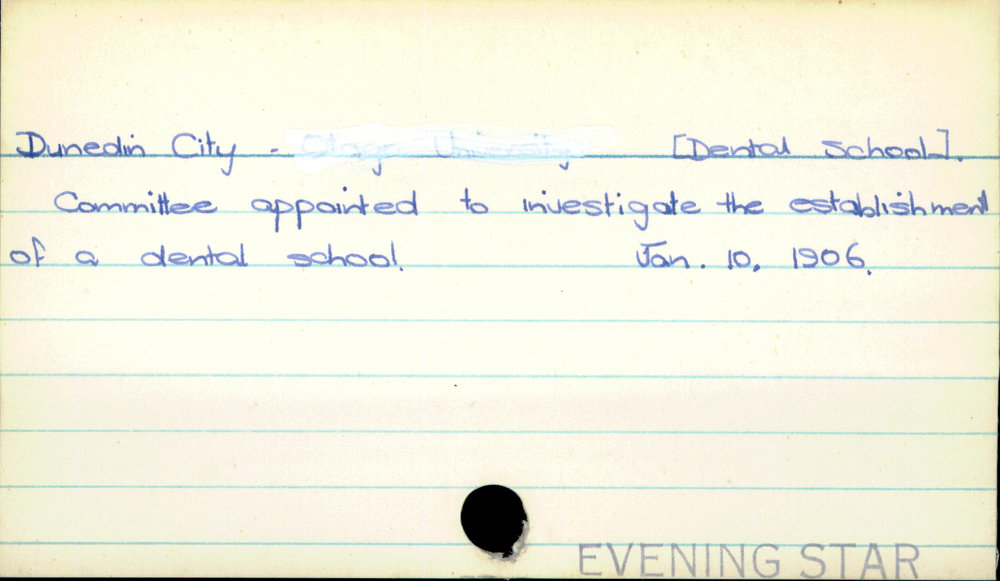 Dunedin City - Otago University [Dental School].
Committee appointed to investigate the establishment
of a dental school. Jan. 10, 1906.
EVENING STAR